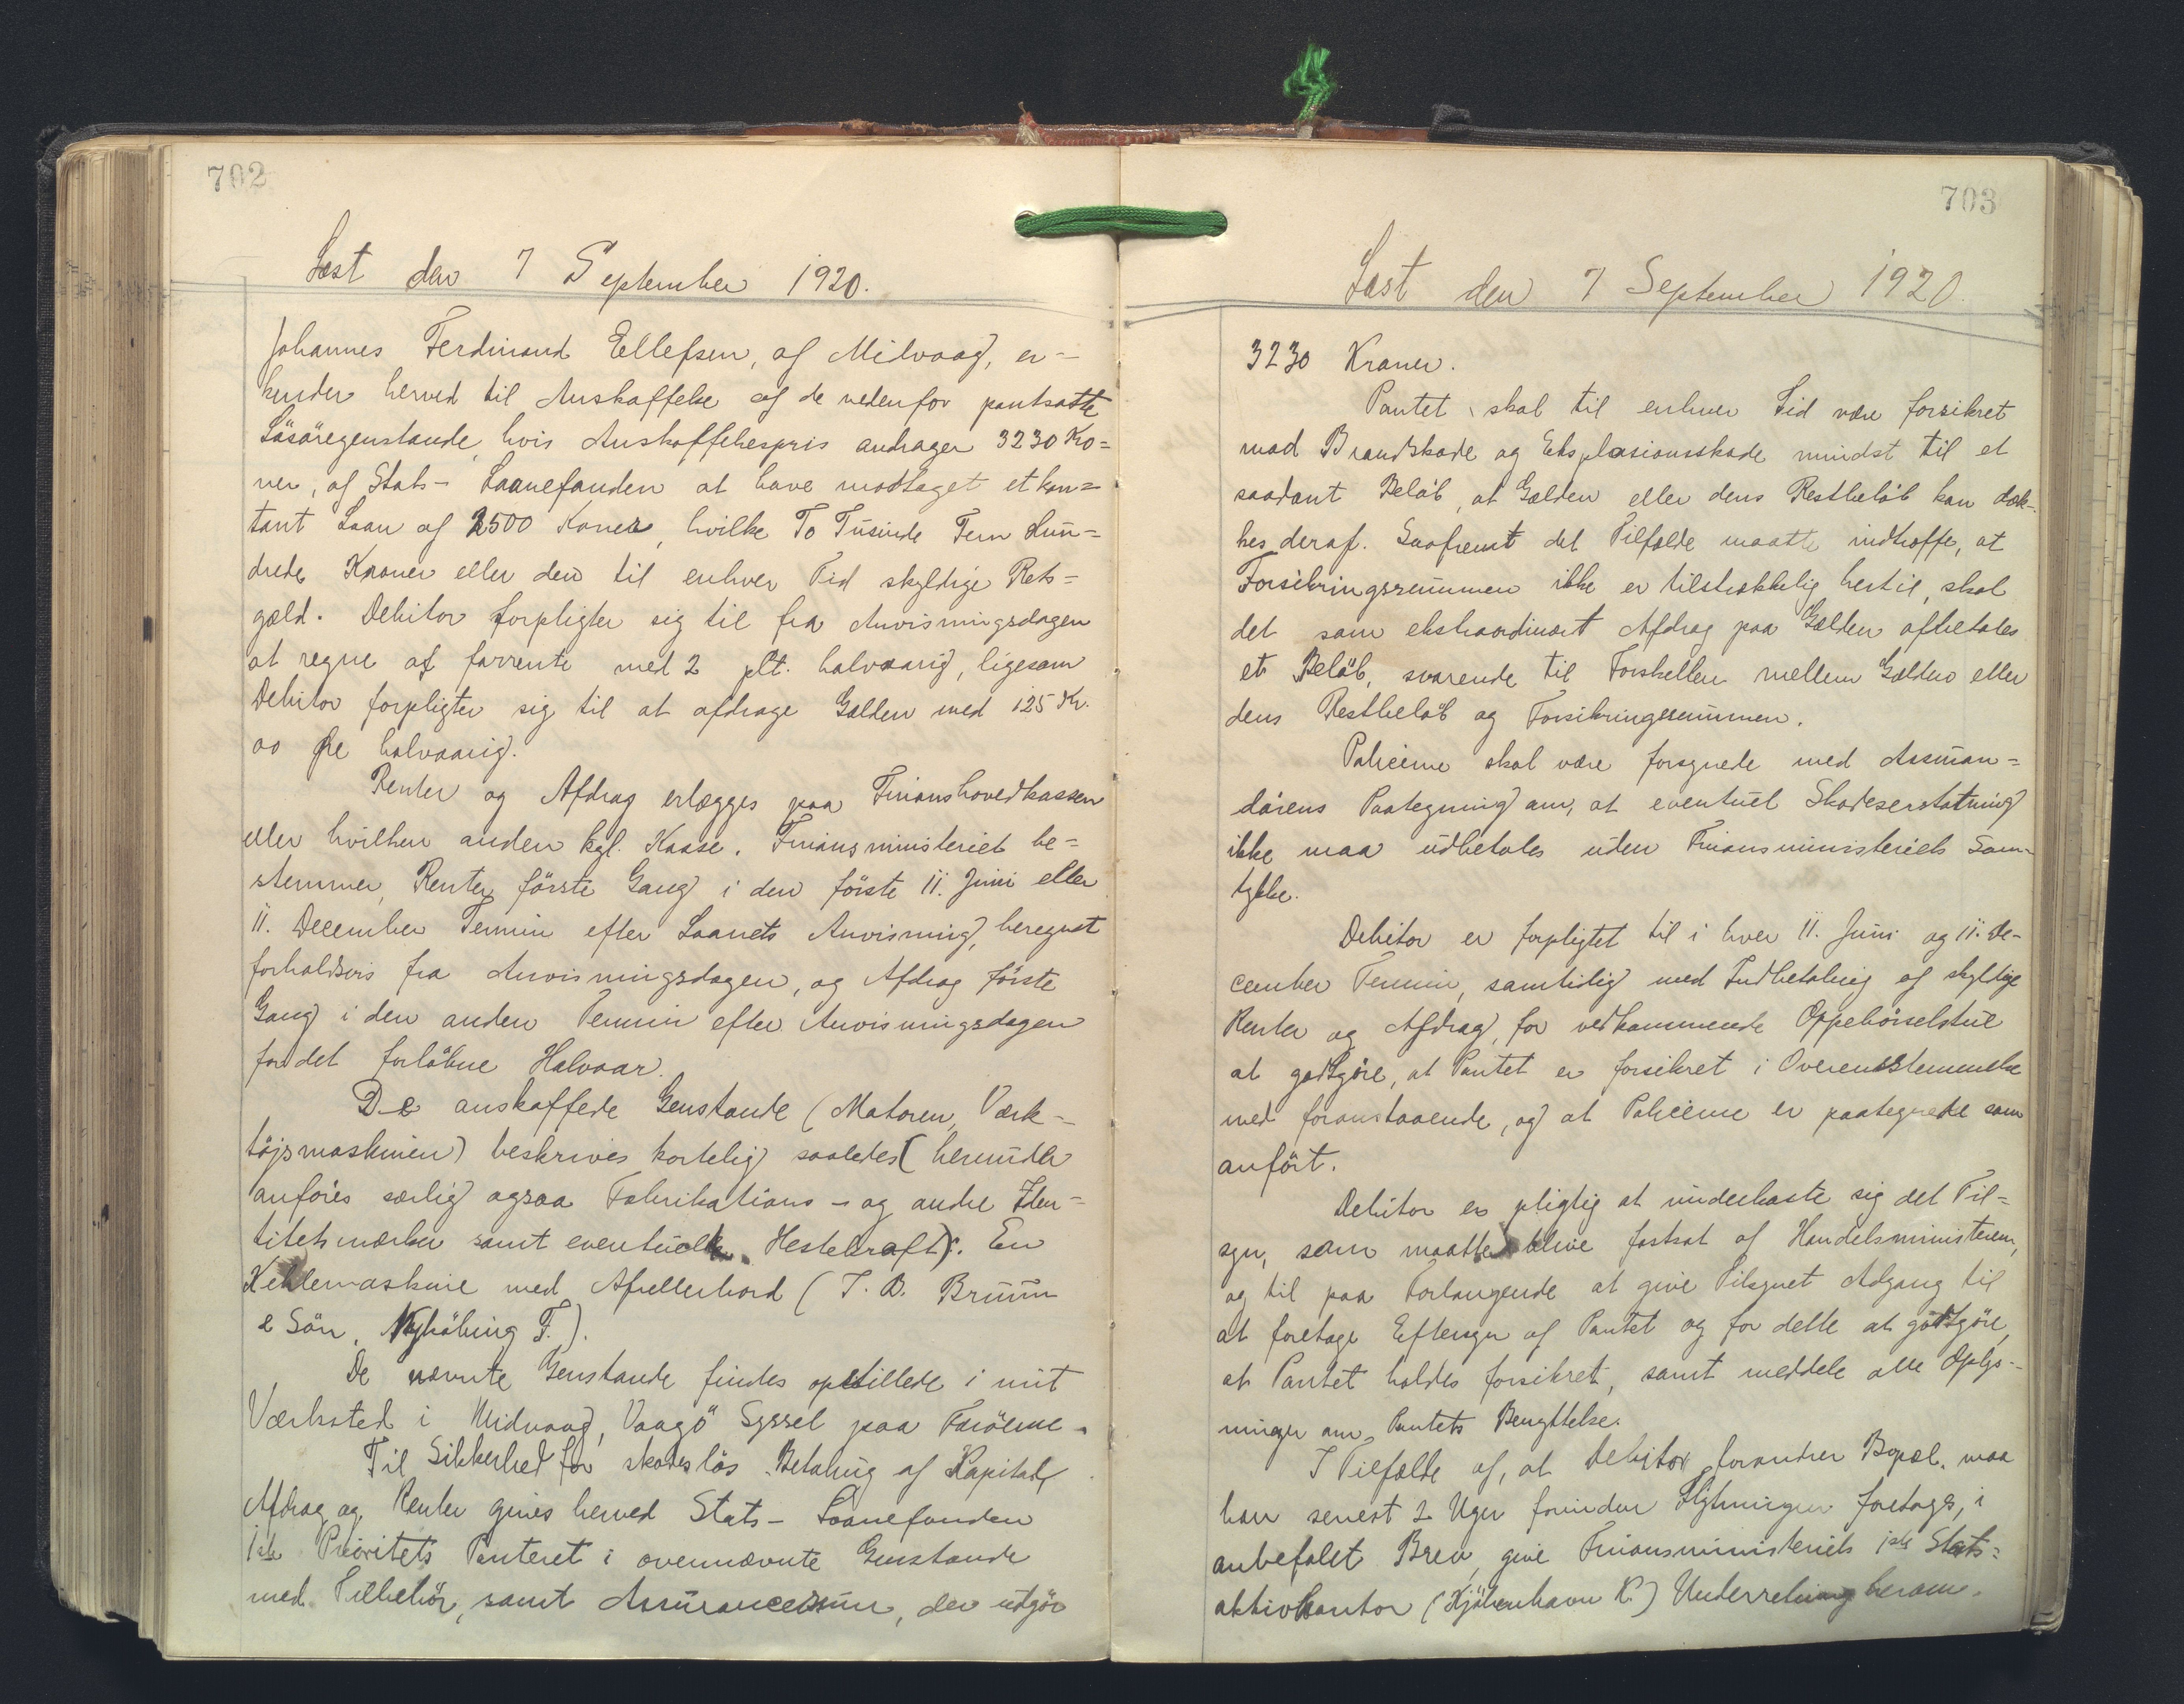 702
Læst den 7 September 1920.
Johannes Ferdinand Ellefsen, af Midvaag, er-
kender herved til Anskaffelse af de nedenfor pantsatte
Lösöregenstande, hvis Anskaffelsespris andrager 3230 Kro=
ner, af Stats- Laanefonden at have modtaget et kon=
tant Laan af 2500 Kroner, hvilke To Tusinde Fem Hun=
drede Kroner eller den til enhver Tid skyldige Rets=
gæld. Debitor forpligter sig til fra Anvisningsdagen
at regne af forrente med 2 pCt. halvaarig, ligesom
Debitor forpligter sig til at afdrage Gælden med 125 Kr.
00 Øre halvaarig.
Renter og Afdrag erlægges paa Finanshovedkassen
eller hvilken anden kgl. Kasse, Finansministeriet be=
stemmer, Renter förste Gang i den förste 11. Juni eller
11. December Termin efter Laanets Anvisning, beregnet
forholdsvis fra Anvisningsdagen, og Afdrag förste
Gang i den anden Termin efter Anvisningsdagen
for det forlöbne Halvaar.
De anskaffede Genstande (Motoren, Værk-
töjsmaskinen) beskrives kortelig saaledes (herunder
anföres særlig ogsaa Fabrikations- og andre Iden-
titetsmærker samt eventuelle Hestekraft): En
Kehlemaskine med Afrellerbord (J. D. Bruun
& Sön, Nykøbing F.).
De nævnte Genstande findes opstillede i mit
Værksted i Midvaag, Vaagö Syssel paa Færöerne.
Til Sikkerhed for skadeslös Betaling af Kapital,
Afdrag og Renter gives herved Stats- Laanefonden
1ste Prioritets Panteret i ovennævnte Genstande
med Tilbehör, samt Assurancesum, der udgör
703
Læst den 7 September 1920.
3230 Kroner.
Pantet skal til enhver Tid være forsikret
mod Brandskade og Eksplosionsskade mindst til et
saadant Belöb, at Gælden eller dens Restbelöb kan dæk-
kes deraf. Saafremt det Tilfælde maatte indtræffe, at
Forsikringssummen ikke er tilstrækkelig hertil, skal
det som ekstraordinært Afdrag paa Gælden afbetales
et Belöb, svarende til Forskellen mellem Gælden eller
dens Restbelöb og Forsikringssummen.
Policerne skal være forsynede med Assuran=
dörens Paategning om, at eventuel Skadeserstatning
ikke maa udbetales uden Finansministeriets Sam-
tykke.
Debitor er forpligtet til i hver 11. Juni og 11. De-
cember Termin, samtidig med Indbetaling af skyldige
Renter og Afdrag, for vedkommende Oppebörselstue
at godtgöre, at Pantet er forsikret i Overensstemmelse
med foranstaaende, og at Policerne er paategnede som
anfört.
Debitor er pligtig at underkaste sig det Til=
syn, som maatte blive fastsat af Handelsministeren,
og til paa Forlangende at give Tilsynet Adgang til
at foretage Eftersyn af Pantet og for dette at godtgöre,
at Pantet holdes forsikret, samt meddele alle Oplys-
ninger om Pantets Benyttelse.
I Tilfælde af, at Debitor forandrer Bopæl, maa
han senest 2 Uger forinden Flytningen foretages, i
anbefalet Brev, give Finansministeriets 1ste Stats=
aktivkontor (Kjöbenhavn K.) Underretning herom.